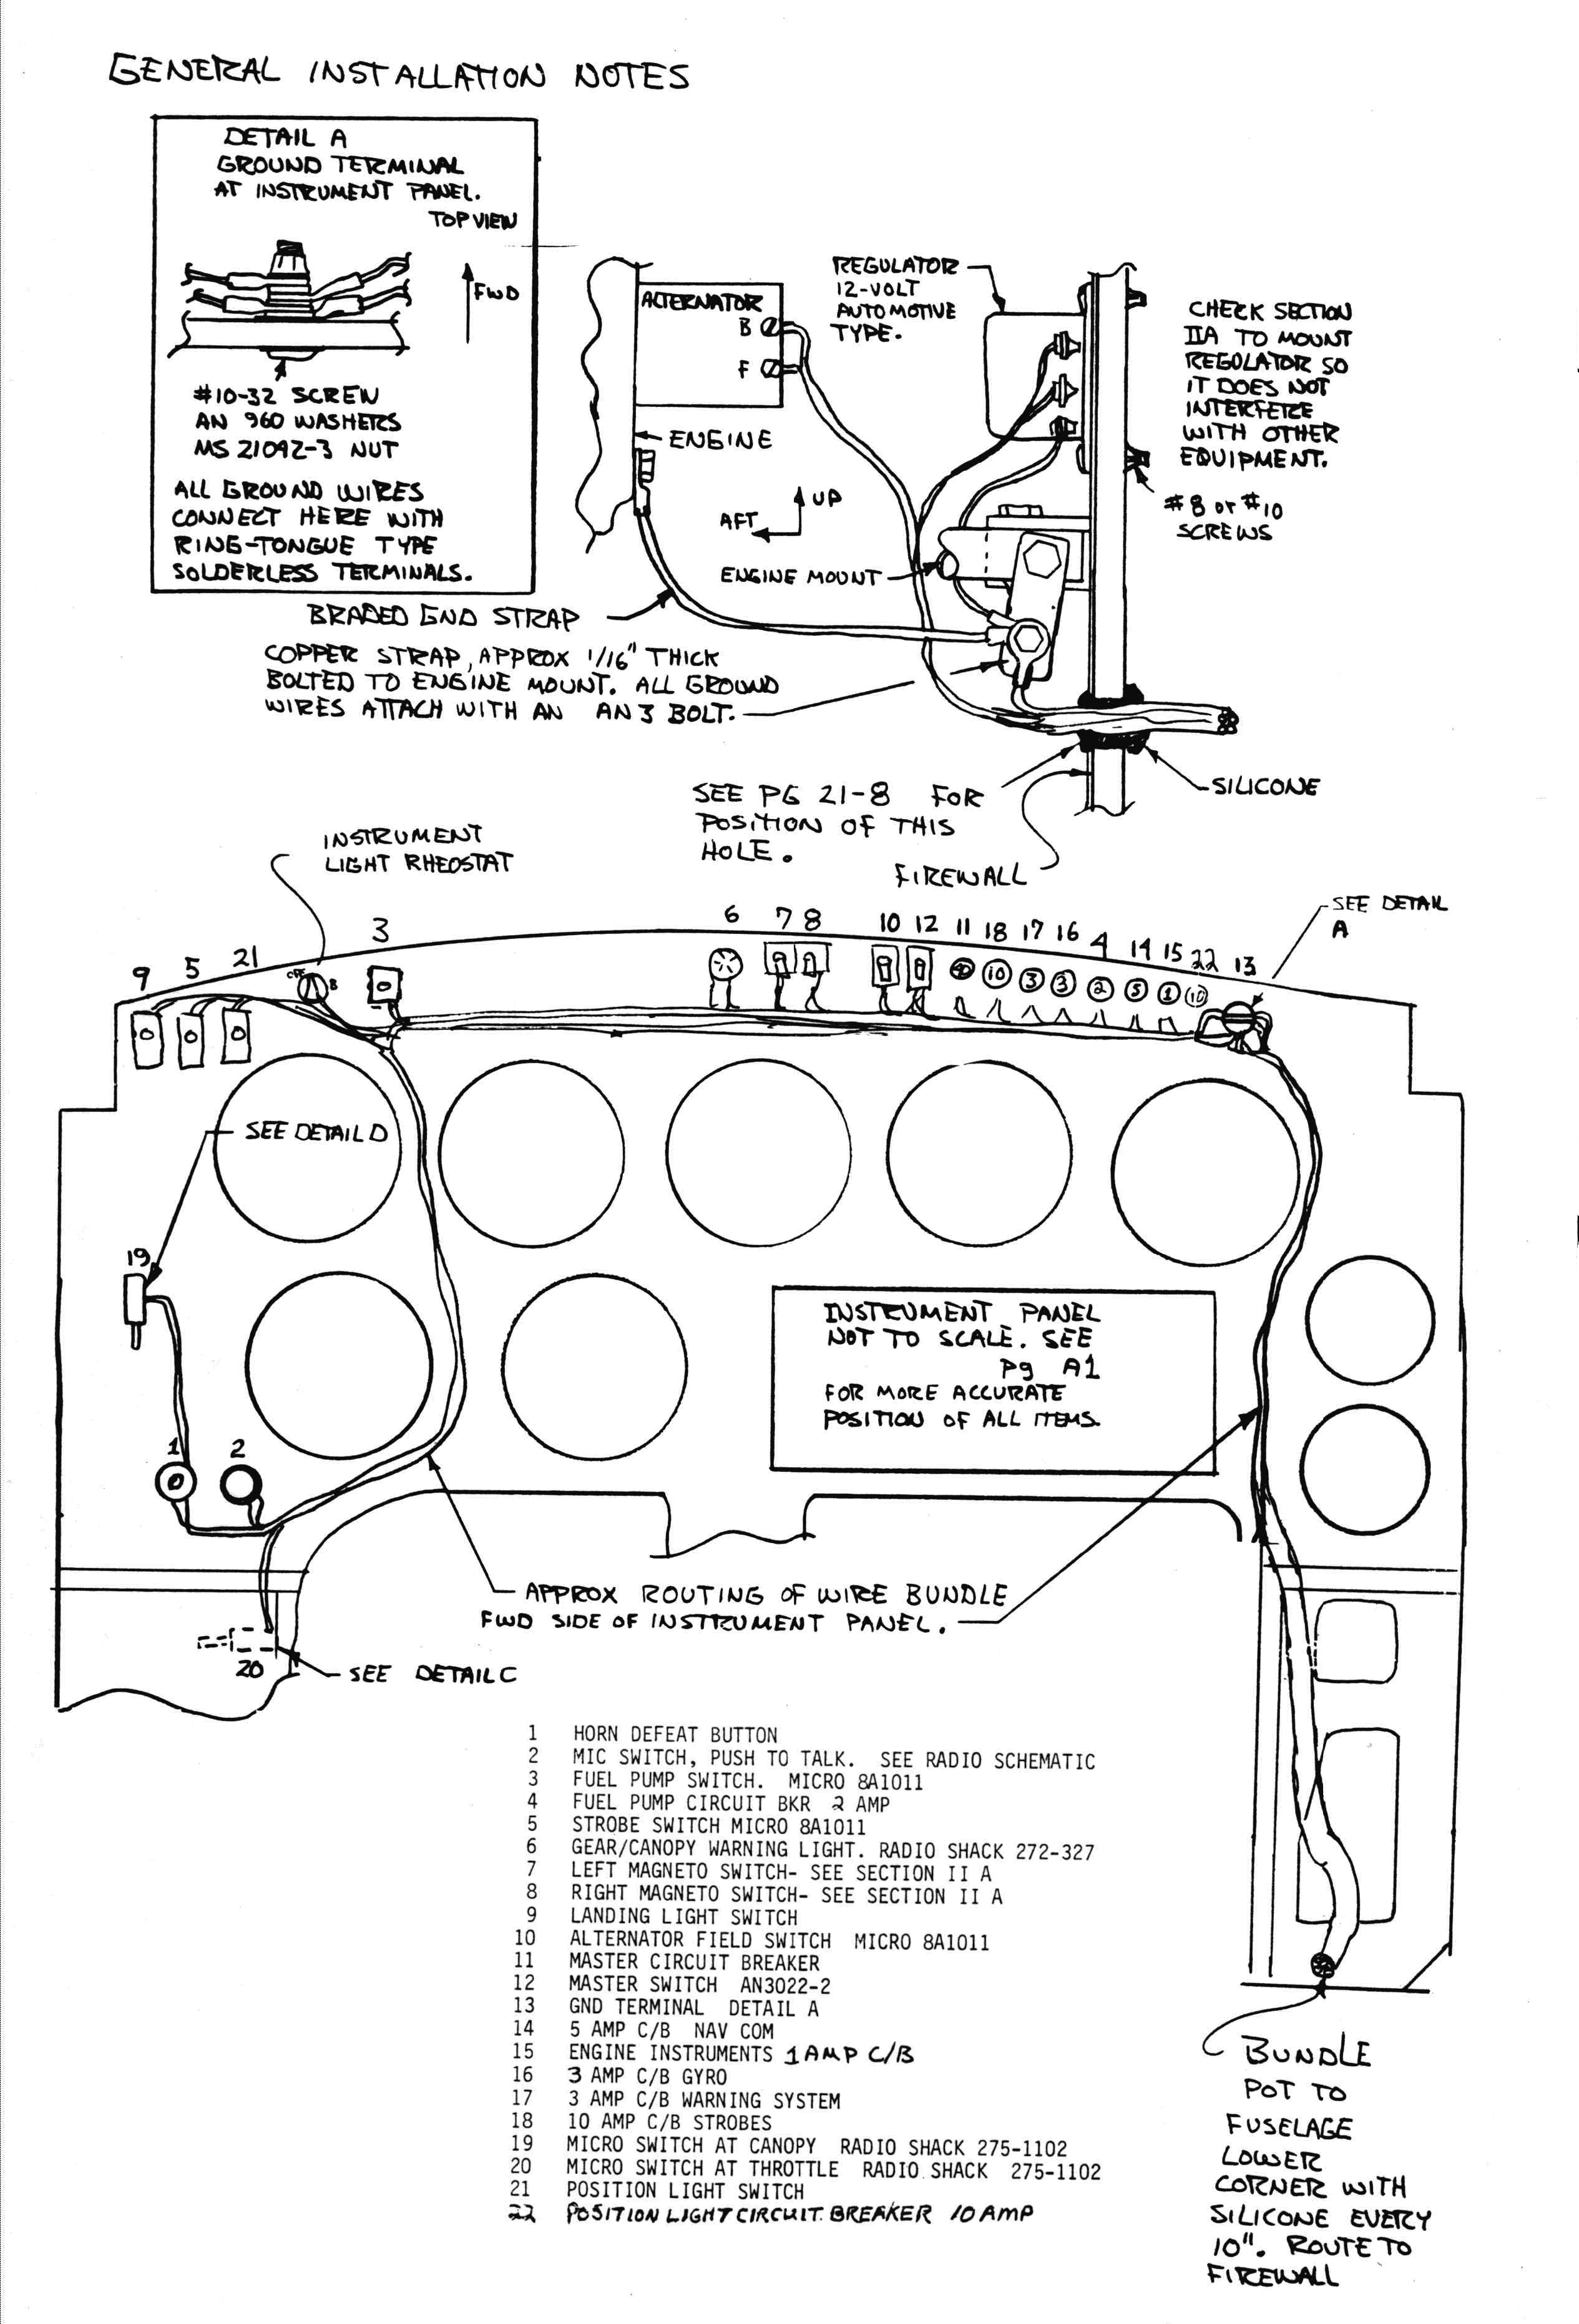 GENERAL INSTALLATION NOTES
DETAIL A
GROUND TERMINAL
AT INSTRUMENT PANEL.
TOP VIEW
FWD
#10-32 SCREW
AN 960 WASHERS
MS 21042-3 NUT
ALL GROUND WIRES
CONNECT HERE WITH
RING-TONGUE TYPE
SOLDERLESS TERMINALS.
ALTERNATOR
B
F
REGULATOR
12-VOLT
AUTOMOTIVE
TYPE.
CHECK SECTION
IIA TO MOUNT
REGULATOR SO
IT DOES NOT
INTERFERE
WITH OTHER
EQUIPMENT.
#8 or #10
SCREWS
ENGINE
UP
AFT
ENGINE MOUNT
BRADED GND STRAP
COPPER STRAP, APPROX 1/16" THICK
BOLTED TO ENGINE MOUNT. ALL GROUND
WIRES ATTACH WITH AN AN3 BOLT.
SEE PG 21-8 FOR
POSITION OF THIS
HOLE.
SILICONE
FIREWALL
INSTRUMENT
LIGHT RHEOSTAT
SEE DETAIL
A
9 5 21 3 6 7 8 10 12 11 18 17 16 4 14 15 22 13
OFF B
10 3 3 2 5 1 10
SEE DETAIL D
19
INSTRUMENT PANEL
NOT TO SCALE. SEE
pg A1
FOR MORE ACCURATE
POSITION OF ALL ITEMS.
1 2
APPROX ROUTING OF WIRE BUNDLE
FWD SIDE OF INSTRUMENT PANEL.
20
SEE DETAIL C
1 HORN DEFEAT BUTTON
2 MIC SWITCH, PUSH TO TALK. SEE RADIO SCHEMATIC
3 FUEL PUMP SWITCH. MICRO 8A1011
4 FUEL PUMP CIRCUIT BKR 2 AMP
5 STROBE SWITCH MICRO 8A1011
6 GEAR/CANOPY WARNING LIGHT. RADIO SHACK 272-327
7 LEFT MAGNETO SWITCH- SEE SECTION II A
8 RIGHT MAGNETO SWITCH- SEE SECTION II A
9 LANDING LIGHT SWITCH
10 ALTERNATOR FIELD SWITCH MICRO 8A1011
11 MASTER CIRCUIT BREAKER
12 MASTER SWITCH AN3022-2
13 GND TERMINAL DETAIL A
14 5 AMP C/B NAV COM
15 ENGINE INSTRUMENTS 1 AMP C/B
16 3 AMP C/B GYRO
17 3 AMP C/B WARNING SYSTEM
18 10 AMP C/B STROBES
19 MICRO SWITCH AT CANOPY RADIO SHACK 275-1102
20 MICRO SWITCH AT THROTTLE RADIO SHACK 275-1102
21 POSITION LIGHT SWITCH
22 POSITION LIGHT CIRCUIT BREAKER 10 AMP
BUNDLE
POT TO
FUSELAGE
LOWER
CORNER WITH
SILICONE EVERY
10". ROUTE TO
FIREWALL